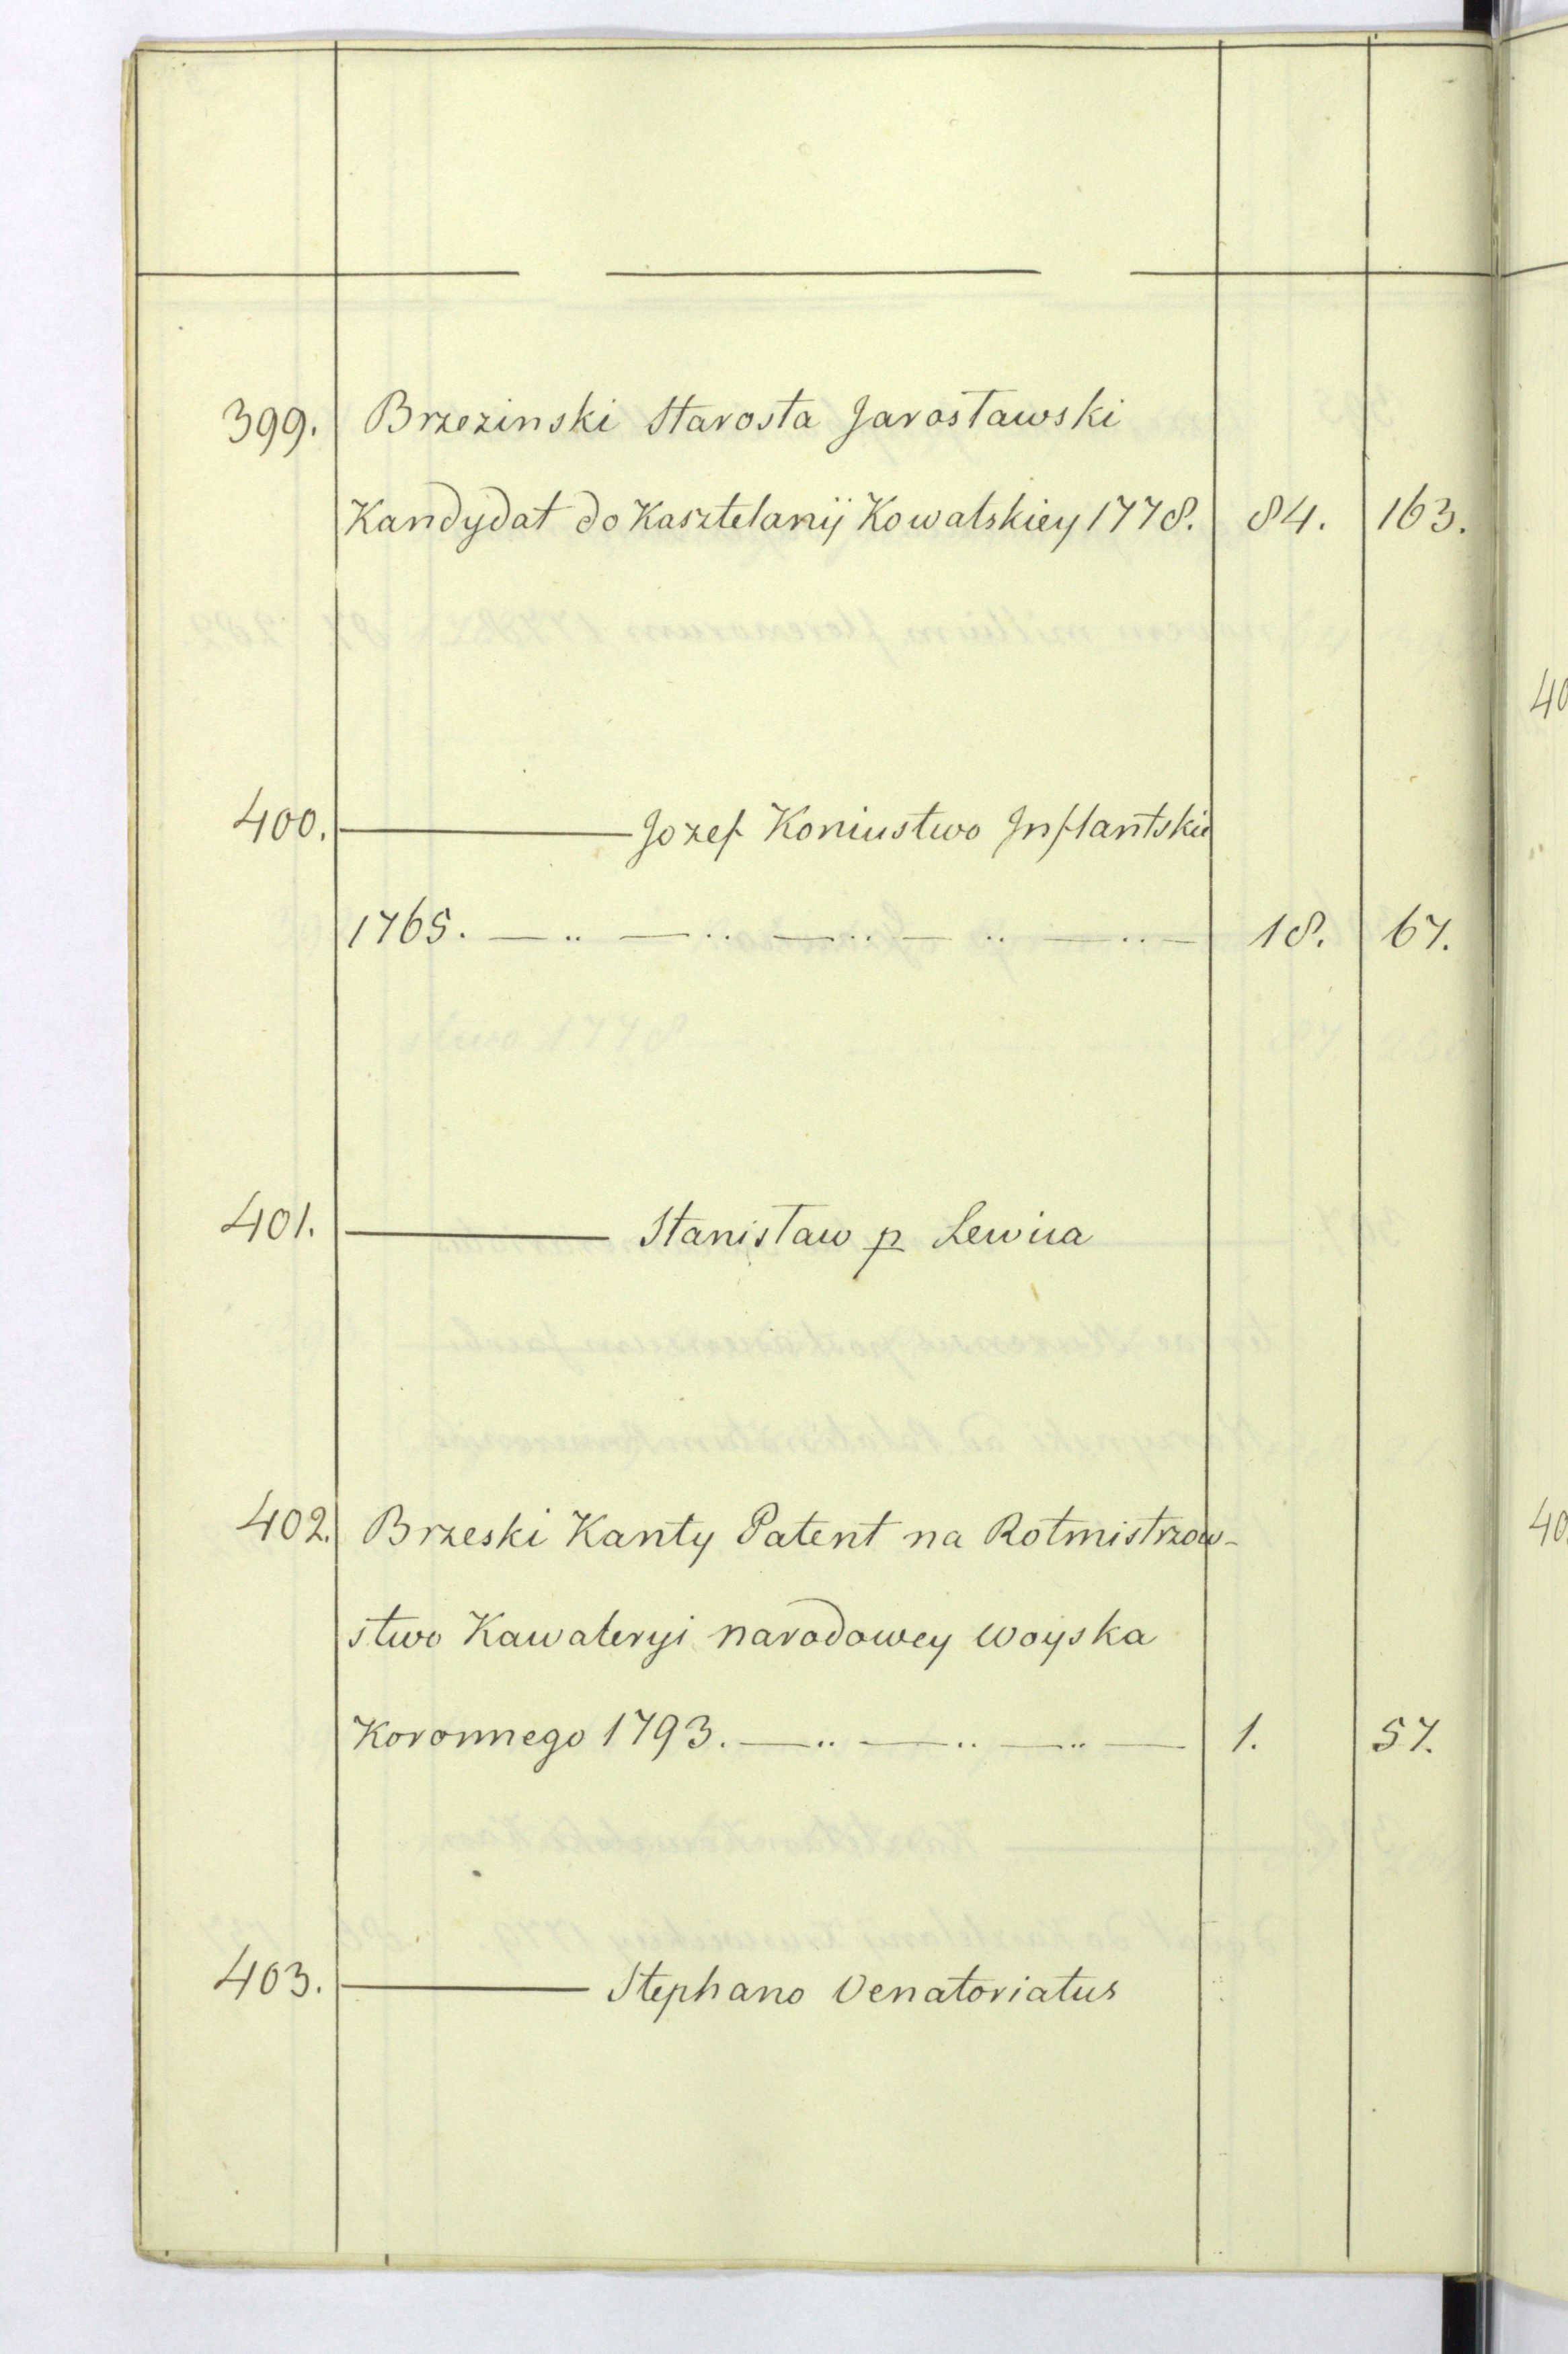 399. Brzezinski Starosta Jarosławski
Kandydat do Kasztelanÿ Kowalskiey 1778. 84. 163.
400. ——— Jozef Koniustwo Inflantskie
1765. —..—..—..—..—..— 18. 67.
401. ——— Stanisław p Lewiia
402. Brzeski Kanty Patent na Rotmistrzow-
stwo Kawaleryi narodowey Woyska
Koronnego 1793. —..—..—..— 1. 57.
403. ——— Stephano Venatoriatus